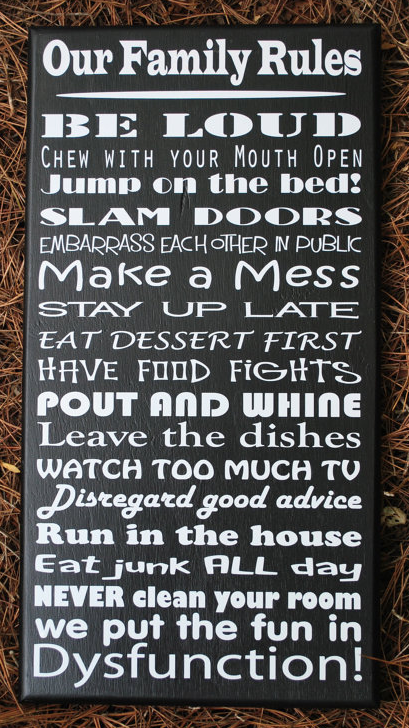 Our Family Rules
BE LOUD
CHEW WITH YOUR MOUTH OPEN
Jump on the bed!
SLAM DOORS
EMBARRASS EACH OTHER IN PUBLIC
Make a Mess
STAY UP LATE
EAT DESSERT FIRST
HAVE FOOD FIGHTS
POUT AND WHINE
Leave the dishes
WATCH TOO MUCH TV
Disregard good advice
Run in the house
Eat junk ALL day
NEVER clean your room
we put the fun in
Dysfunction!